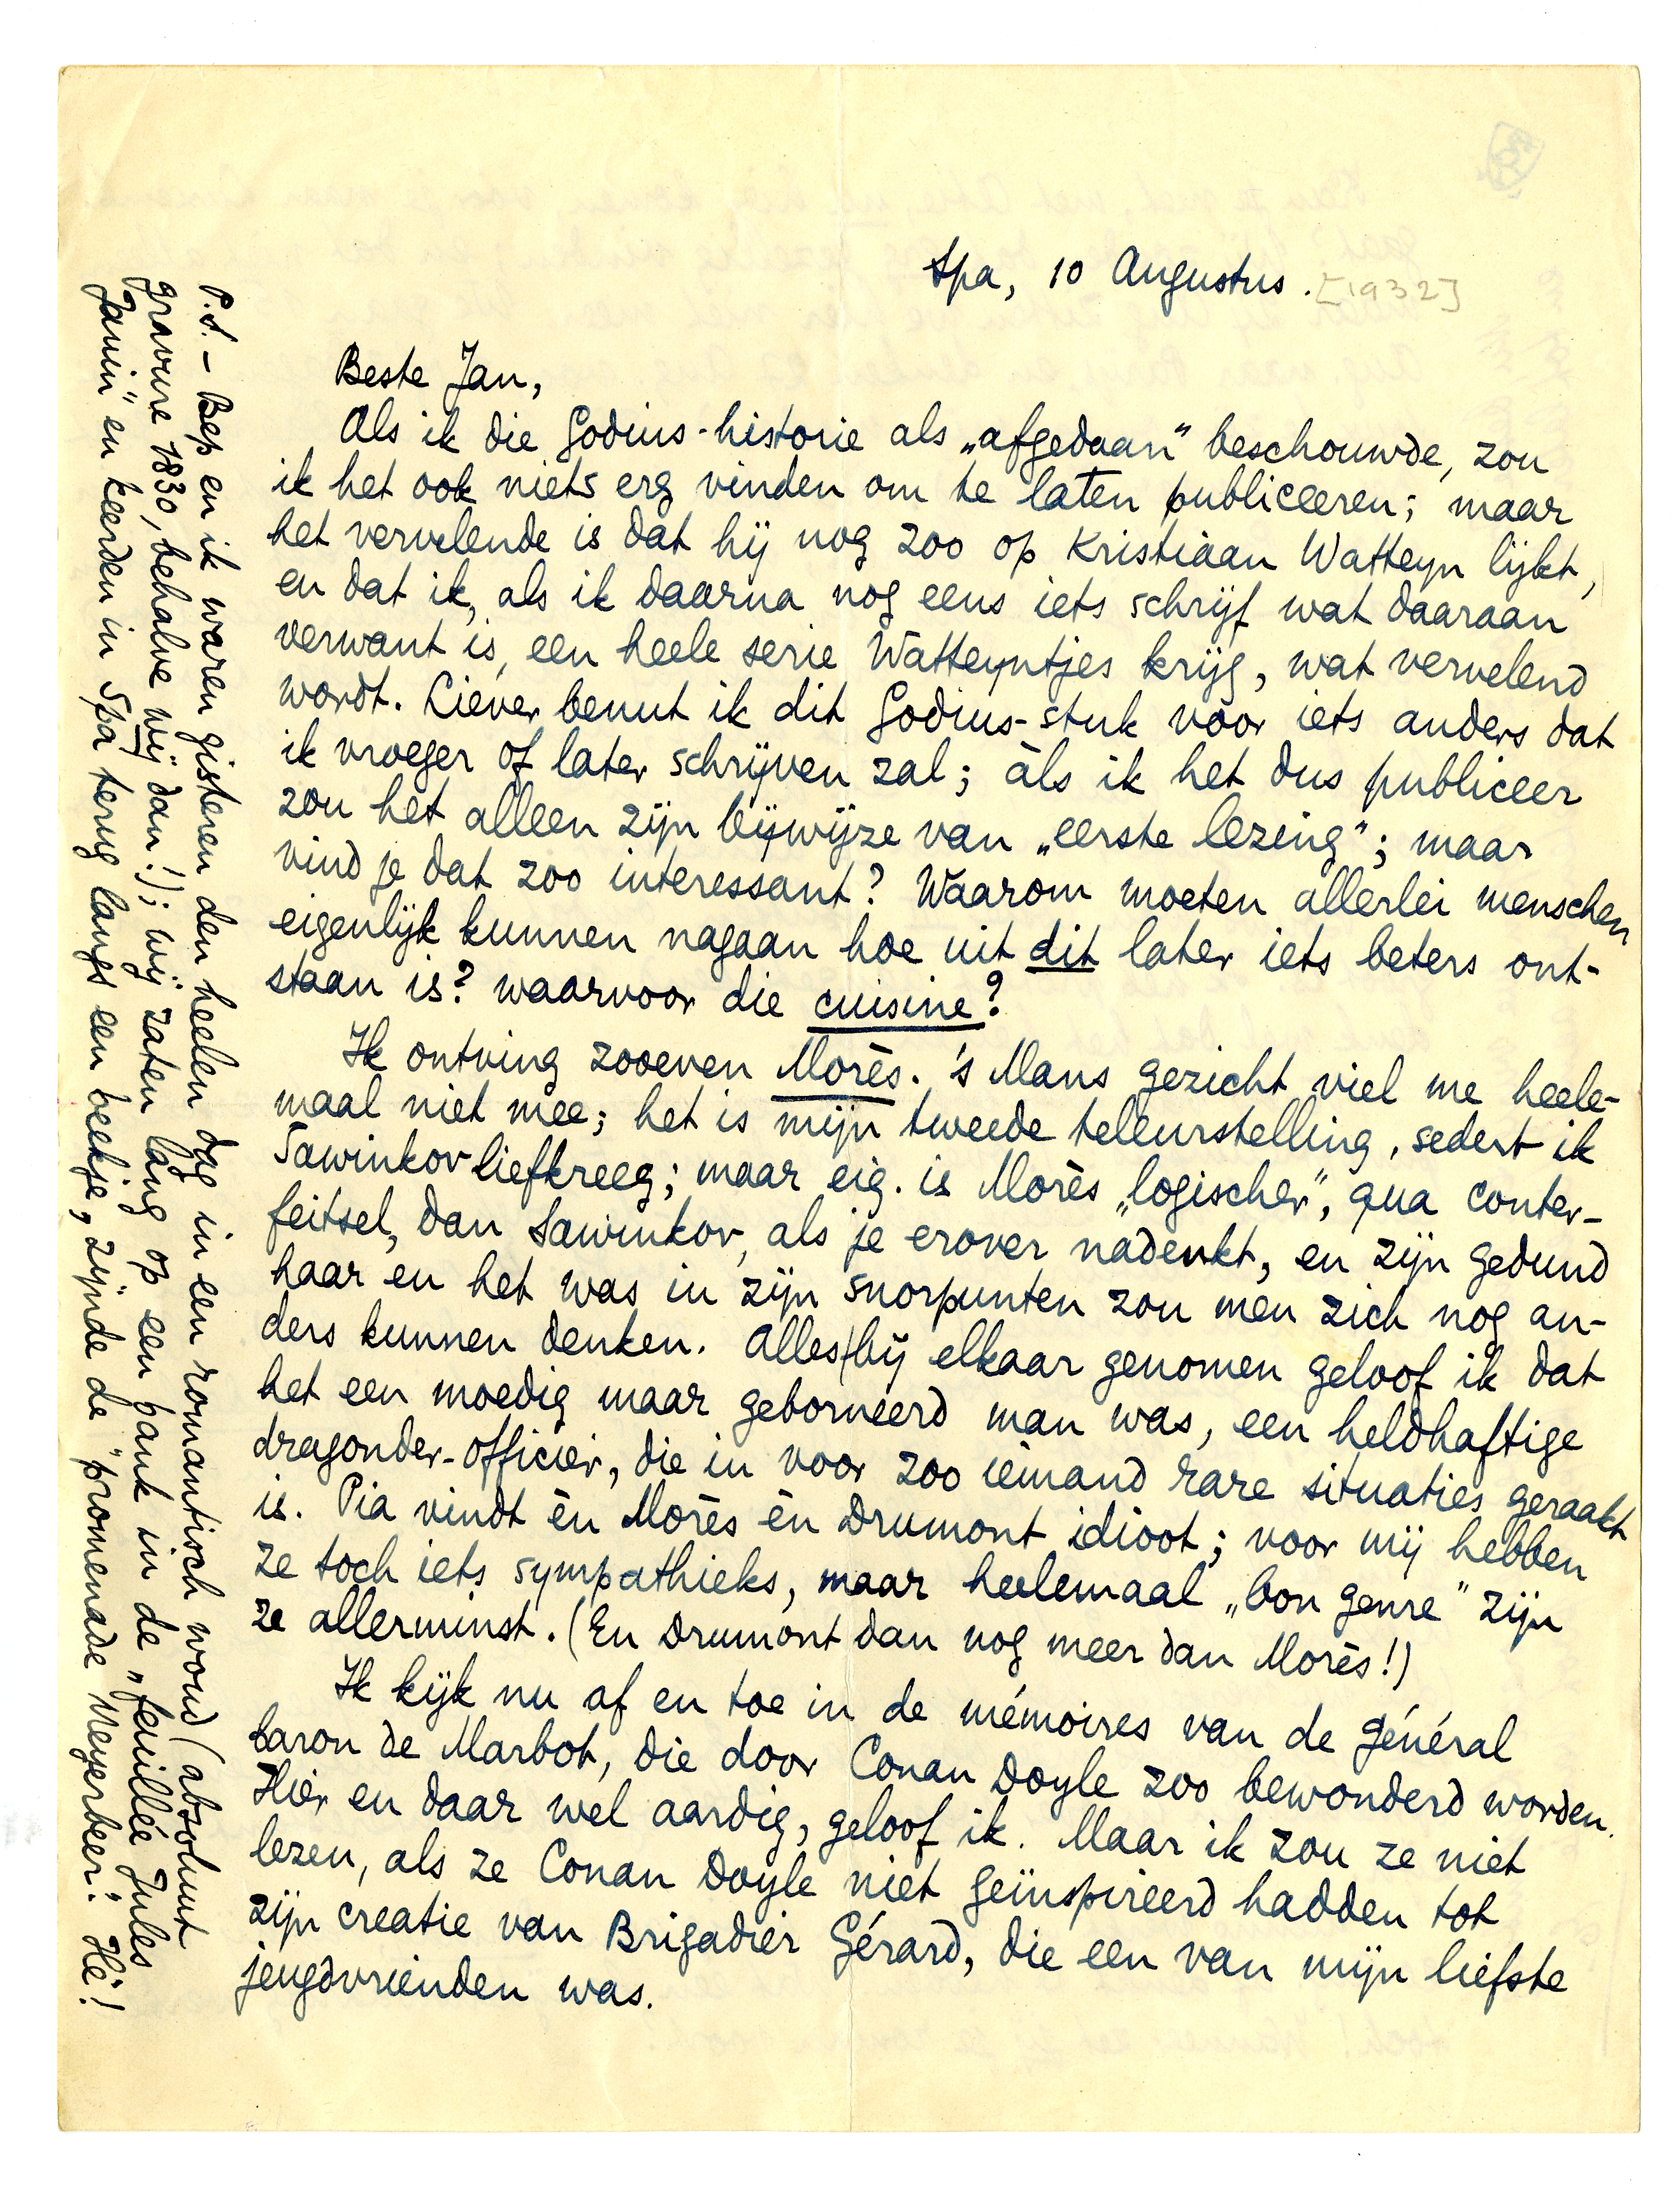 Spa, 10 Augustus. [1932]
Beste Jan,
Als ik die Godius-historie als „afgedaan” beschouwde, zou
ik het ook niets erg vinden om te laten publiceeren; maar
het vervelende is dat hij nog zoo op Kristiaan Watteyn lijkt,
en dat ik, als ik daarna nog eens iets schrijf wat daaraan
verwant is, een heele serie Watteyntjes krijg, wat vervelend
wordt. Liever benut ik dit Godius-stuk voor iets anders dat
ik vroeger of later schrijven zal; àls ik het dus publiceer
zou het alleen zijn bijwijze van „eerste lezing”; maar
vind je dat zoo interessant? Waarom moeten allerlei menschen
eigenlijk kunnen nagaan hoe uit dit later iets beters ont-
staan is? waarvoor die cuisine?
Ik ontving zooeven Morès. 's Mans gezicht viel me heele-
maal niet mee; het is mijn tweede teleurstelling, sedert ik
Sawinkov liefkreeg; maar eig. is Morès „logischer”, qua conter-
feitsel, dan Sawinkov, als je erover nadenkt, en zijn gedund
haar en het was in zijn snorpunten zou men zich nog an-
ders kunnen denken. Alles bij elkaar genomen geloof ik dat
het een moedig maar geborneerd man was, een heldhaftige
dragonder-officier, die in voor zoo iemand rare situaties geraakt
is. Pia vindt èn Morès èn Drumont idioot; voor mij hebben
ze toch iets sympathieks, maar heelemaal „bon genre” zijn
ze allerminst. (En Drumont dan nog meer dan Morès!)
Ik kijk nu af en toe in de mémoires van de général
baron de Marbot, die door Conan Doyle zoo bewonderd worden.
Hier en daar wel aardig, geloof ik. Maar ik zou ze niet
lezen, als ze Conan Doyle niet geïnspireerd hadden tot
zijn creatie van Brigadier Gérard, die een van mijn liefste
jeugdvrienden was.
P.S. – Bep en ik waren gisteren den heelen dag in een romantisch woud (absoluut
gravure 1830, behalve wij dan!); wij zaten lang op een bank in de „feuillée Jules
Janin” en keerden in Spa terug langs een beekje, zijnde de „promenade Meyerbeer”. Hè!